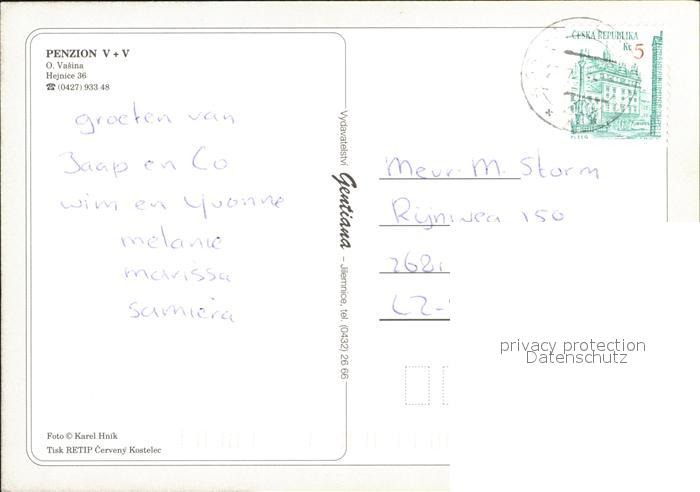 PENZION V + V
O. Vašina
Hejnice 36
☎ (0427) 933 48
groeten van
Jaap en Co
wim en Yvonne
melanie
marissa
samiera
Foto © Karel Hník
Tisk RETIP Červený Kostelec
Vydavatelství Gentiana – Jilemnice, tel. (0432) 26 66
ČESKÁ REPUBLIKA
Kč 5
PLZEŇ
Mevr. M. Storm
Rijnweg 150
2681
LZ-
privacy protection
Datenschutz